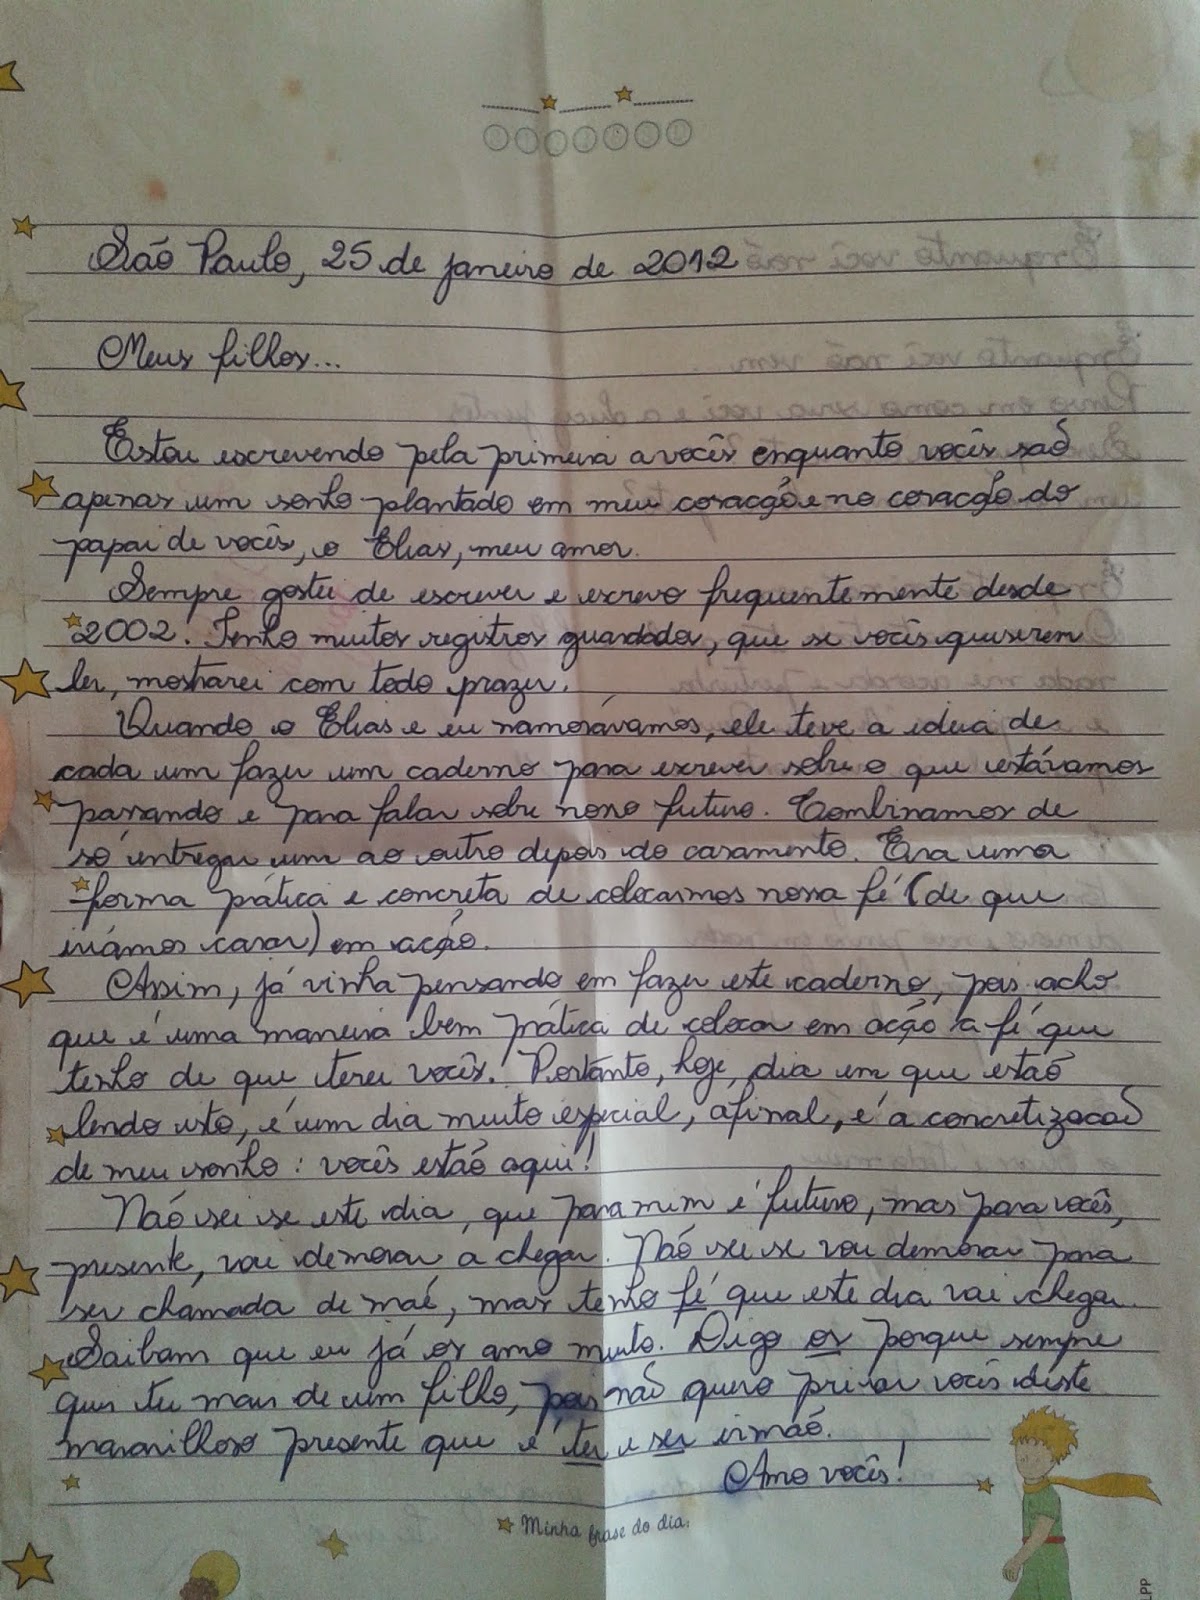 São Paulo, 25 de janeiro de 2012
Meus filhos...
Estou escrevendo pela primeira a vocês enquanto vocês são
apenas um sonho plantado em meu coracção e no coracção do
papai de vocês, o Elias, meu amor.
Sempre gostei de escrever e escrevo frequentemente desde
2002. Tenho muitos registros guardados, que se vocês quiserem
ler, mostrarei com todo prazer.
Quando o Elias e eu namorávamos, ele teve a ideia de
cada um fazer um caderno para escrever sobre o que estávamos
passando e para falar sobre nosso futuro. Combinamos de
só entregar um ao outro depois do casamento. Era uma
forma prática e concreta de colocarmos nossa fé (de que
iríamos casar) em ação.
Assim, já vinha pensando em fazer este caderno, pois acho
que é uma maneira bem prática de colocar em ação a fé que
tenho de que terei vocês. Portanto, hoje, dia em que estão
lendo isto, é um dia muito especial, afinal, é a concretizacão
de meu sonho: vocês estão aqui!
Não sei se este dia, que para mim é futuro, mas para vocês,
presente, vai demorar a chegar. Não sei se vou demorar para
ser chamada de mãe, mas tenho fé que este dia vai chegar.
Saibam que eu já os amo muito. Digo os porque sempre
quis ter mais de um filho, pois não quero privar vocês deste
maravilhoso presente que é ter e ser irmão.
Amo vocês!
Minha frase do dia:
LPP